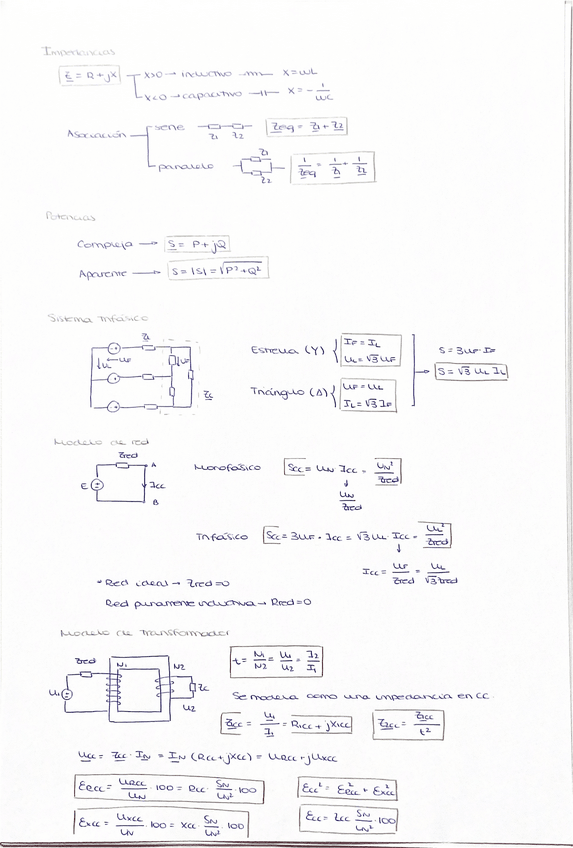 Impedancias
Z = R + jX
X>0 → inductivo X = ωL
X<0 → capacitivo X = -1/ωC
Asociación
serie Z1 Z2 Zeq = Z1 + Z2
paralelo Z1 Z2 1/Zeq = 1/Z1 + 1/Z2
Potencias
Compleja → S = P + jQ
Aparente → S = |S| = √P²+Q²
Sistema trifásico
Estrella (Y) IF = IL
UL = √3 UF
Triángulo (Δ) UF = UL
IL = √3 IF
S = 3UF·IF
S = √3 UL IL
Modelo de red
Zred A B E Icc
Monofásico Scc = UN Icc = UN²/Zred
UN/Zred
Trifásico Scc = 3UF · Icc = √3 UL · Icc = UL²/Zred
Icc = UF/Zred = UL/√3 Zred
• Red ideal → Zred = 0
Red puramente inductiva → Rred = 0
Modelo de transformador
Zred N1 N2 U1 Zc U2
t = N1/N2 = U1/U2 = I2/I1
Se modela como una impedancia en cc.
Z1cc = U1/I1 = R1cc + jX1cc Z2cc = Z1cc/t²
Ucc = Zcc · IN = IN (Rcc + jXcc) = URcc + jUXcc
εRcc = URcc/UN · 100 = Rcc · SN/UN² · 100
εcc² = εRcc² + εXcc²
εXcc = UXcc/UN · 100 = Xcc · SN/UN² · 100
εcc = Zcc SN/UN² · 100